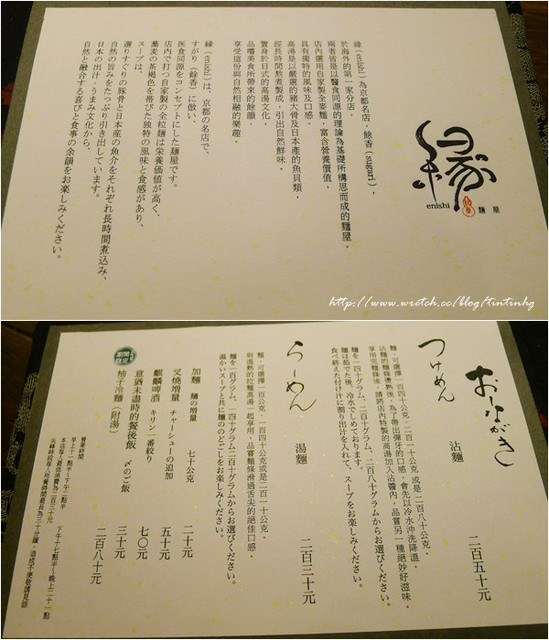 縁
enishi
麵屋
縁（enishi）為京都名店，餘香（sugari），
於海外的第一家分店。
兩者皆是以醫食同源的理論為基礎所構思而成的麵屋，
店內選用自家製全麥麵，富含營養價值，
具有獨特的風味及口感。
高湯是以嚴選的豬大骨及日本產的魚貝類，
經長時間熬煮製成，引出自然鮮味。
置身於日式的高湯文化，
品嚐美食所帶來的餘韻，
享受這份與自然相融的樂趣。
縁（enishi）は、京都の名店で、
すがり（餘香）に倣い、
医食同源をコンセプトにした麺屋です。
店内で打つ自家製の全粒麺は栄養価値が高く、
蕎麦の茶褐色を帯びた独特の風味と食感があり、
スープは、
選りすぐりの豚骨と日本産の魚介をそれぞれ長時間煮込み、
自然の旨みをたっぷり引き出しています。
日本の出汁・うまみ文化から、
自然と融合する喜びと食事の余韻をお楽しみください。
http://www.wretch.cc/blog/tintinhg
おしながき
つけめん 沾麵 二百五十元
麵，可選擇一百四十公克，二百一十公克或是二百八十公克。
沾麵的麵條優熟後，為了帶出彈牙的口感，會先以冷水沖洗降溫，
享用完麵條後，請將店內特製的高湯加入沾醬內，品嘗另一種絕妙好滋味。
麺を一四十グラム、二百一十グラム、二百八十グラムからお選びください。
麺は茹でた後、冷水でしめております。
食べ終えた付け汁に割り出汁を入れて、スープをお楽しみください。
らーめん 湯麵 二百三十元
麵，可選擇一百公克，一百四十公克或是二百一十公克。
與溫熱的拉麵高湯一起享用，品嘗麵條滑過舌尖的絕佳口感。
麺を一百グラム、一百四十グラム、二百十グラムからお選びください。
温かいスープと共に麺ののどごしをお楽しみください。
加麵 麺の増量 七十公克 二十元
叉燒增量 チャーシューの追加 五十元
麒麟啤酒 キリン一番絞り 七〇元
意猶未盡時的餐後飯 〆のご飯 三十元
期間限定 柚子冷麵（附湯） 二百八十元
營業時間
早上十一點半～下午二點半 下午十七點半～晚上二十一點
本店每人最低消費為二百三十元